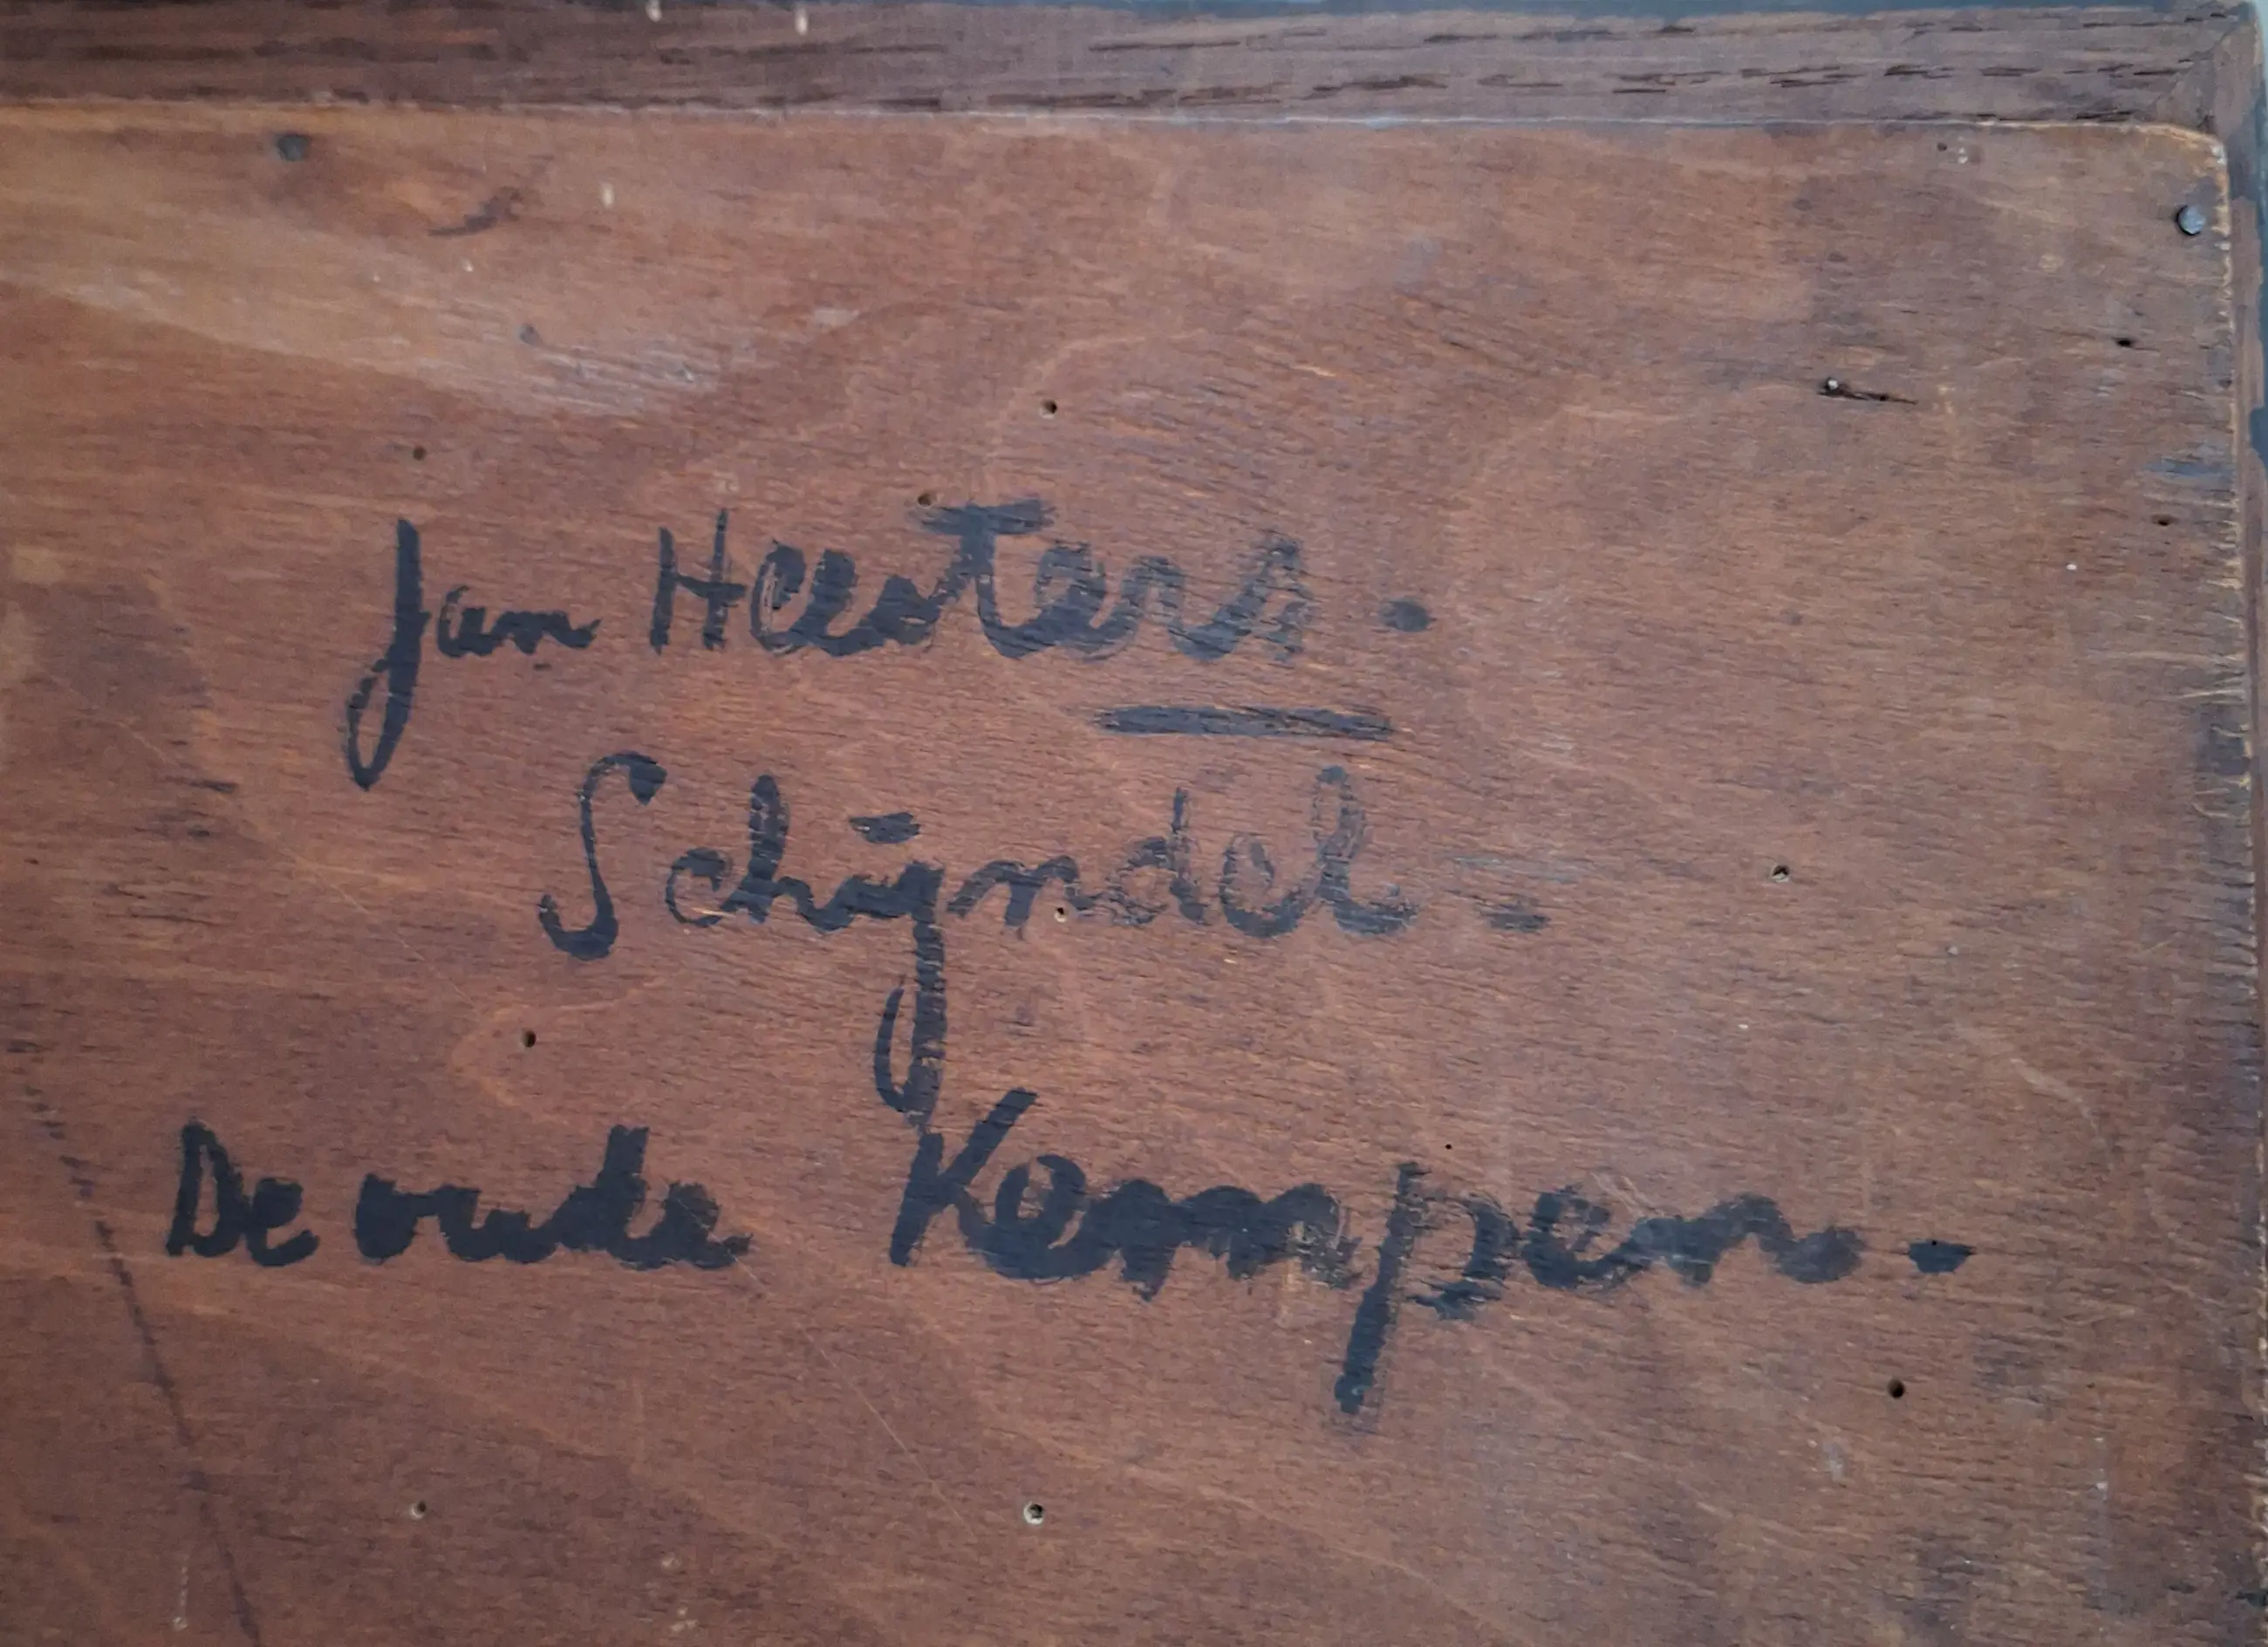 Jan Heesters.
Schijndel.
De oude Kempen.